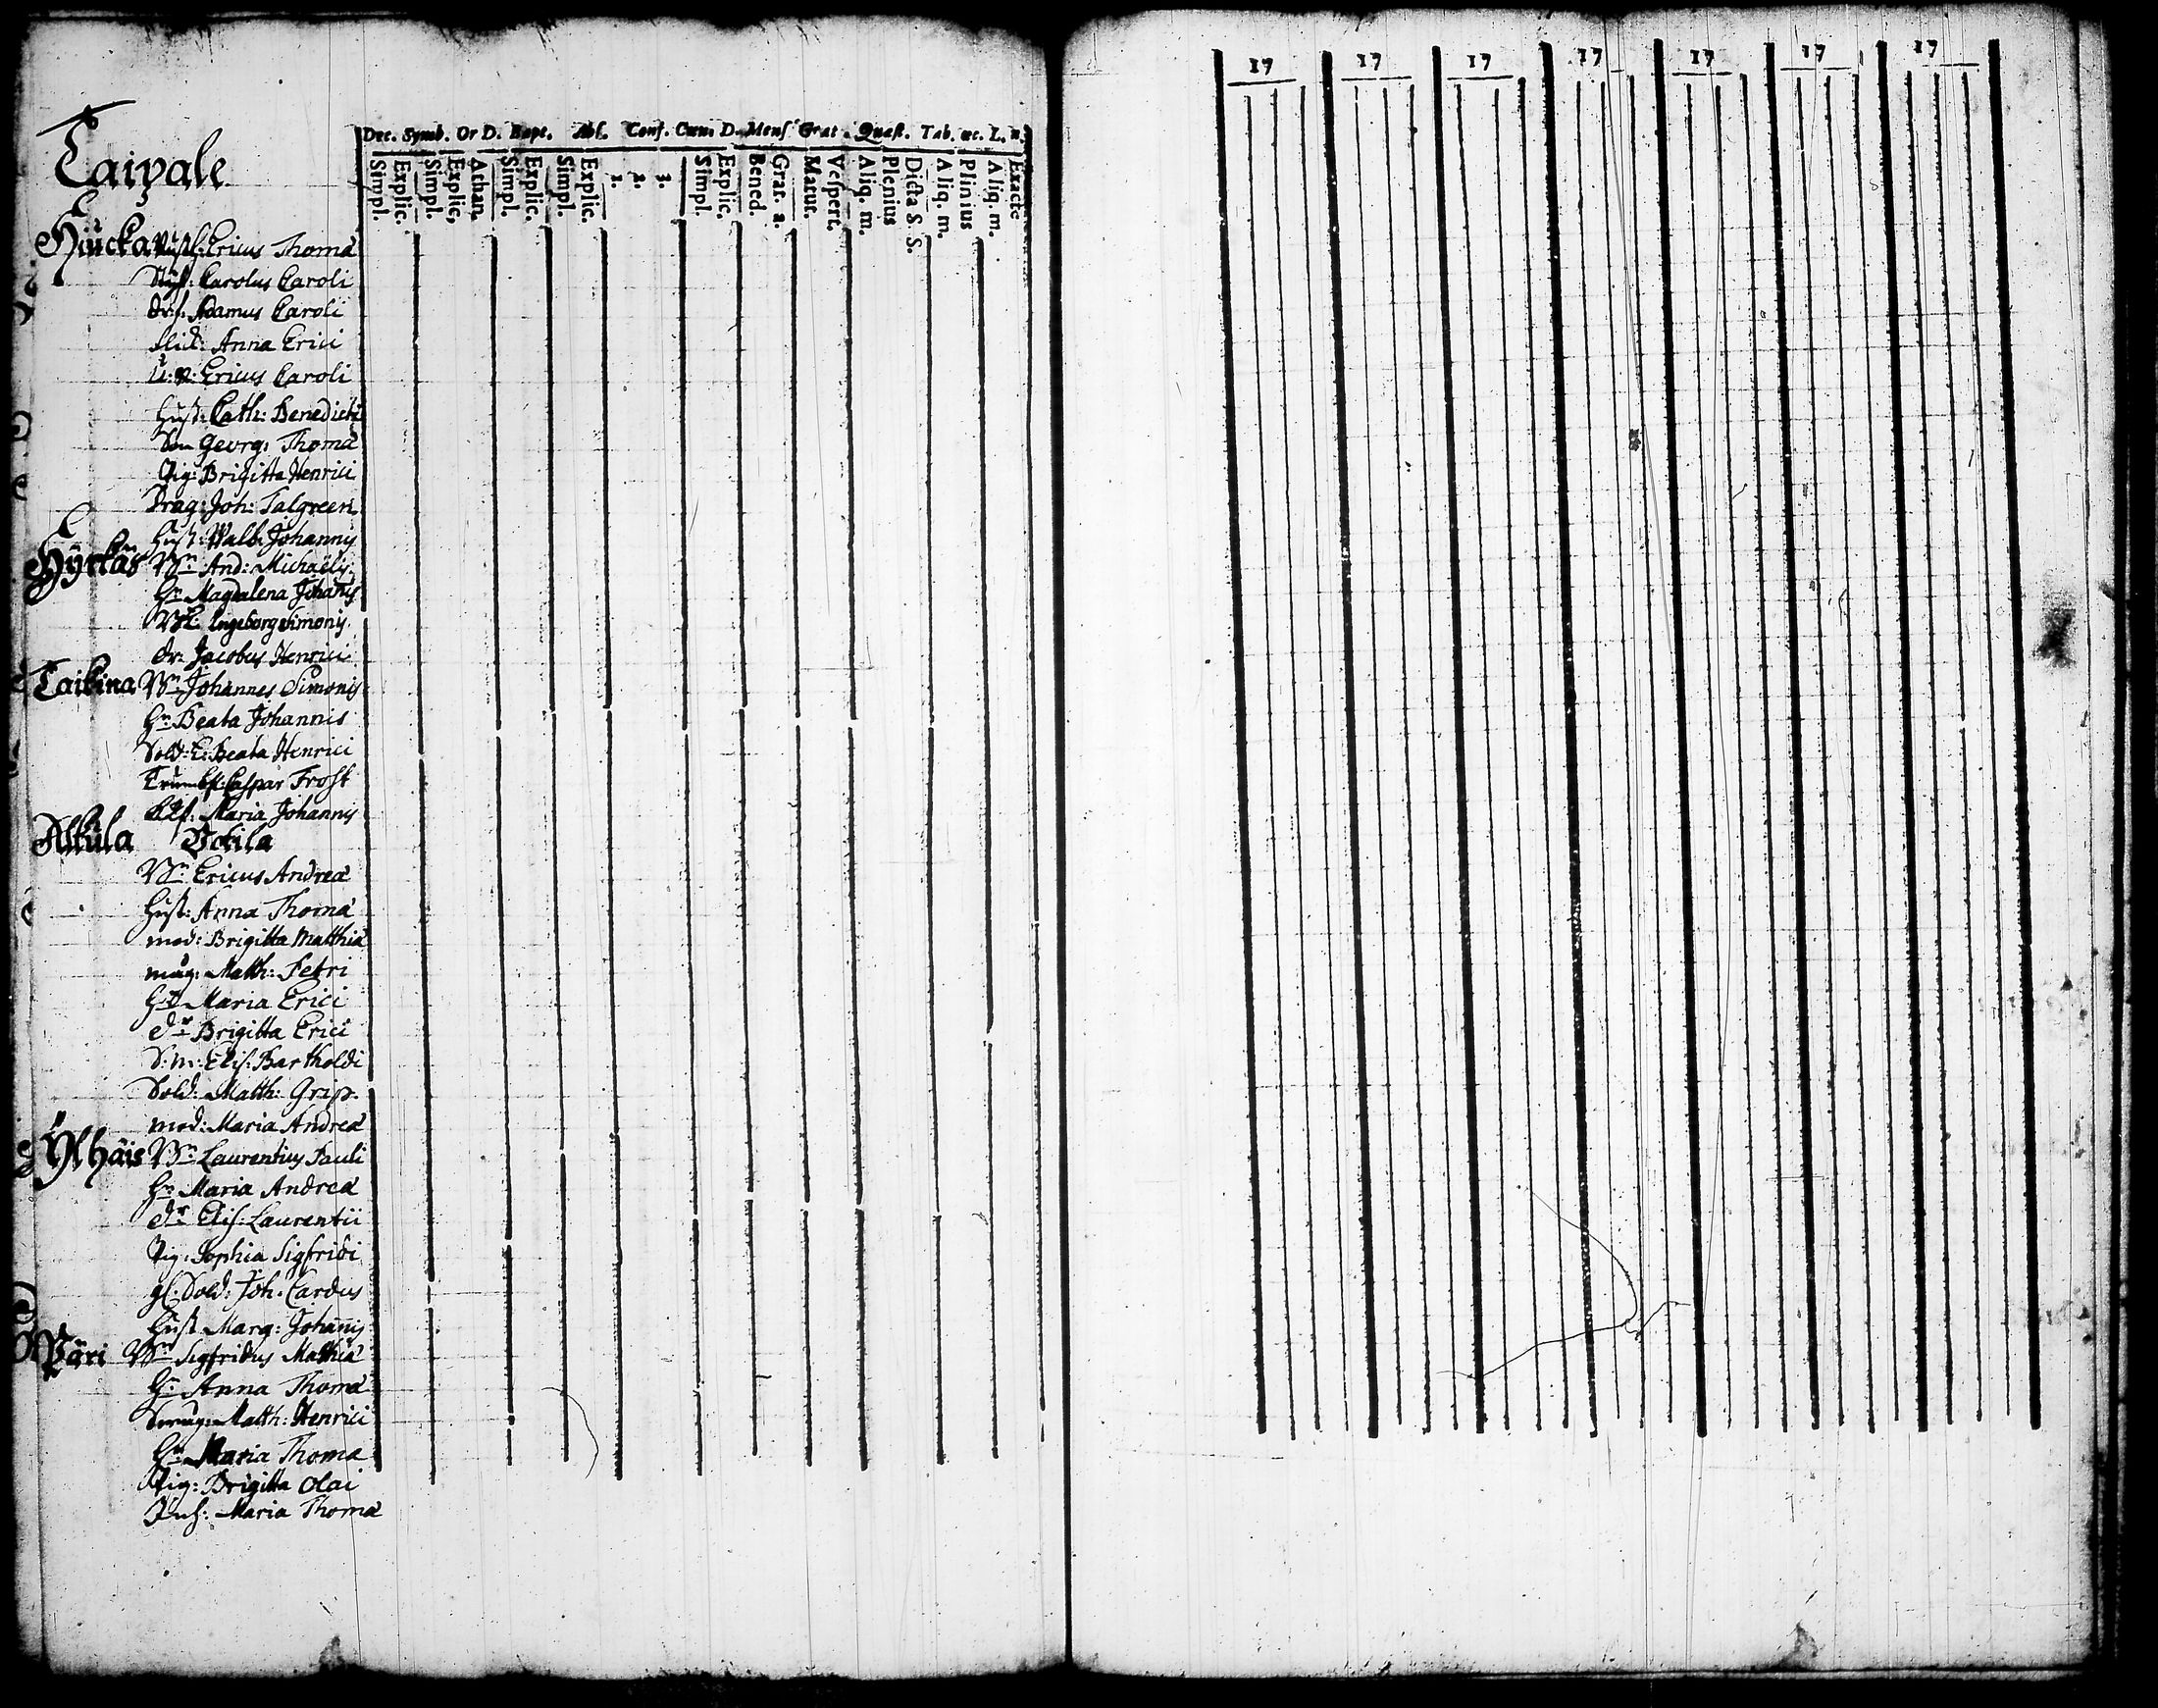 17 17 17 17 17 17 17
Dec. Symb. Or D. Bapt. Abs. Conf. Cœn. D. Mens Grat. Quæst. Tab. œc. L. n.
Simpl. Explic. Simpl. Explic. Athan. Simpl. Explic. Simpl. Explic. 1. 2. 3. Simpl. Explic. Bened. Grat. a. Matut. Vespert. Aliq. m. Plenius Dicta S. S. Aliq. m. Plinius Aliq. m. Exacte
Taipale
Hiucka Ericus Thomæ
Carolus Caroli
Adamus Caroli
Anna Erici
Ericus Caroli
Hust: Cath: Benedicti
Son Georg: Thomæ
Pig: Brigitta Henrici
Drag: Joh: Talgreen
Hust: Walb: Johannis
Hyrkäs And: Michaëlis
Magdalena Johanis
Ingeborg Simonis
Jacobus Henrici
Taikina Johannes Simonis
Beata Johannis
Sold: E: Beata Henrici
Caspar Frost
Maria Johannis
Alkula Ockila
Ericus Andreæ
Hust: Anna Thomæ
mod: Brigitta Matthiæ
måg: Matth: Petri
Maria Erici
Brigitta Erici
S: m: Elis: Bartholdi
Sold: Matth: Grip
mod: Maria Andreæ
Ylhäis Laurentius Pauli
Maria Andreæ
Elis: Laurentii
Pig: Sophia Sigfridi
gl. Sold: Joh. Cardus
Hust Marg: Johanis
Päri Sigfridus Mathiæ
Anna Thomæ
Matth: Henrici
Maria Thomæ
Pig: Brigitta Olai
Inh: Maria Thomæ